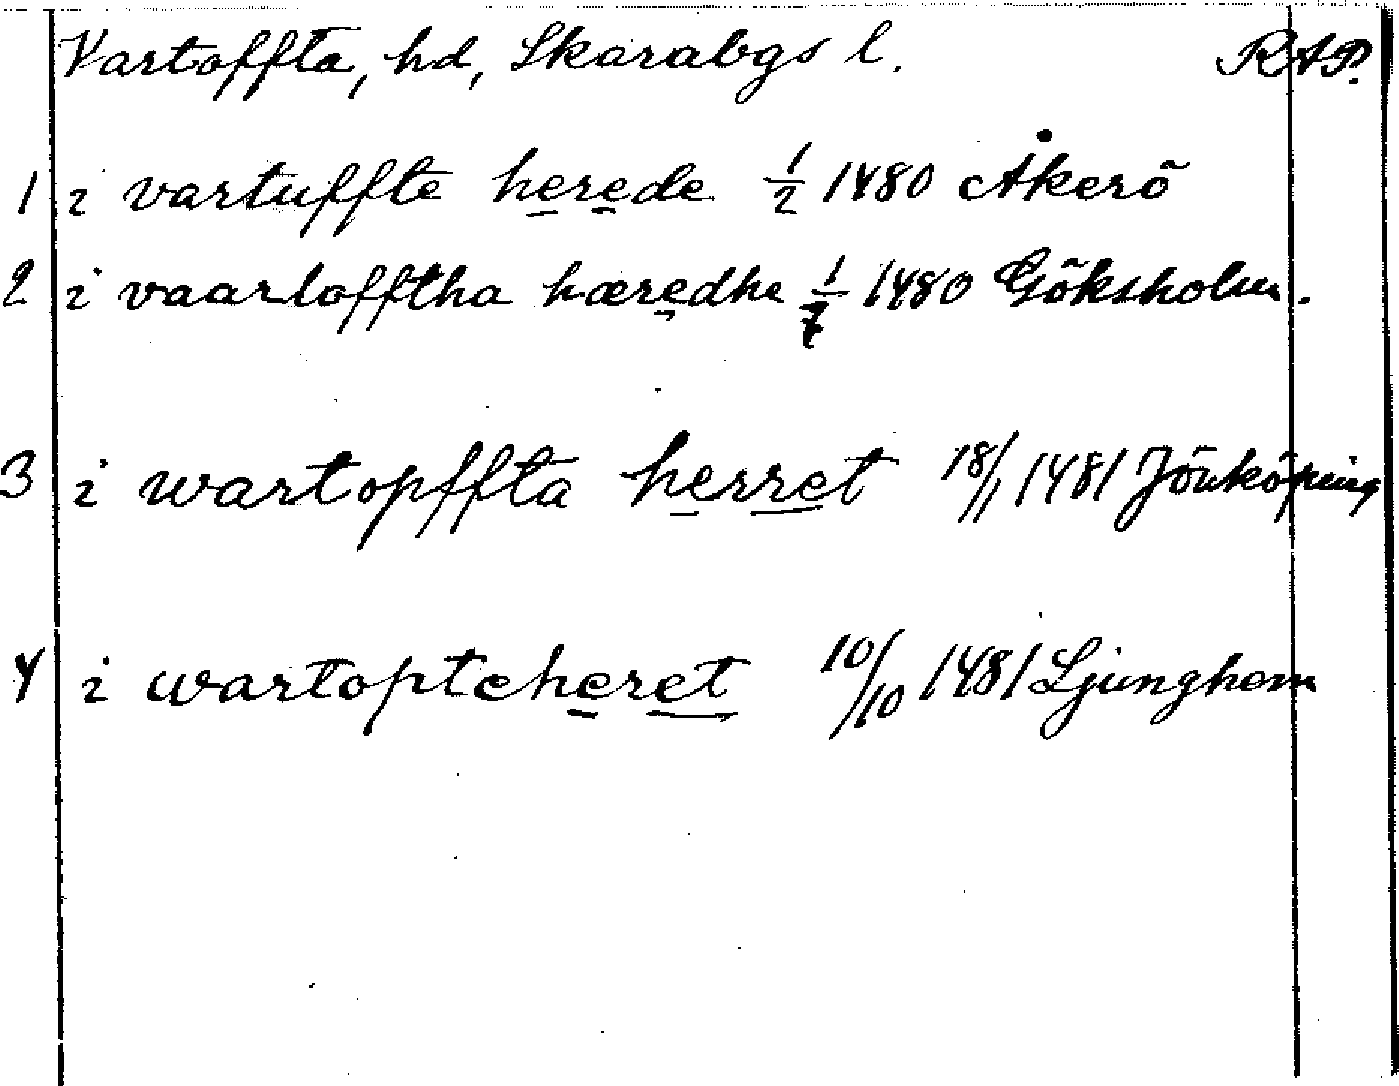 Vartoffta, hd, Skarabgs l. RAP.
1 i vartuffte herede 1/2 1480 Åkerö
2 i vaartofftha hæredhe 1/7 1480 Göksholm.
3 i wartopffta herret 18/11 1481 Jönköping
4 i wartopteheret 10/10 1481 Ljunghem